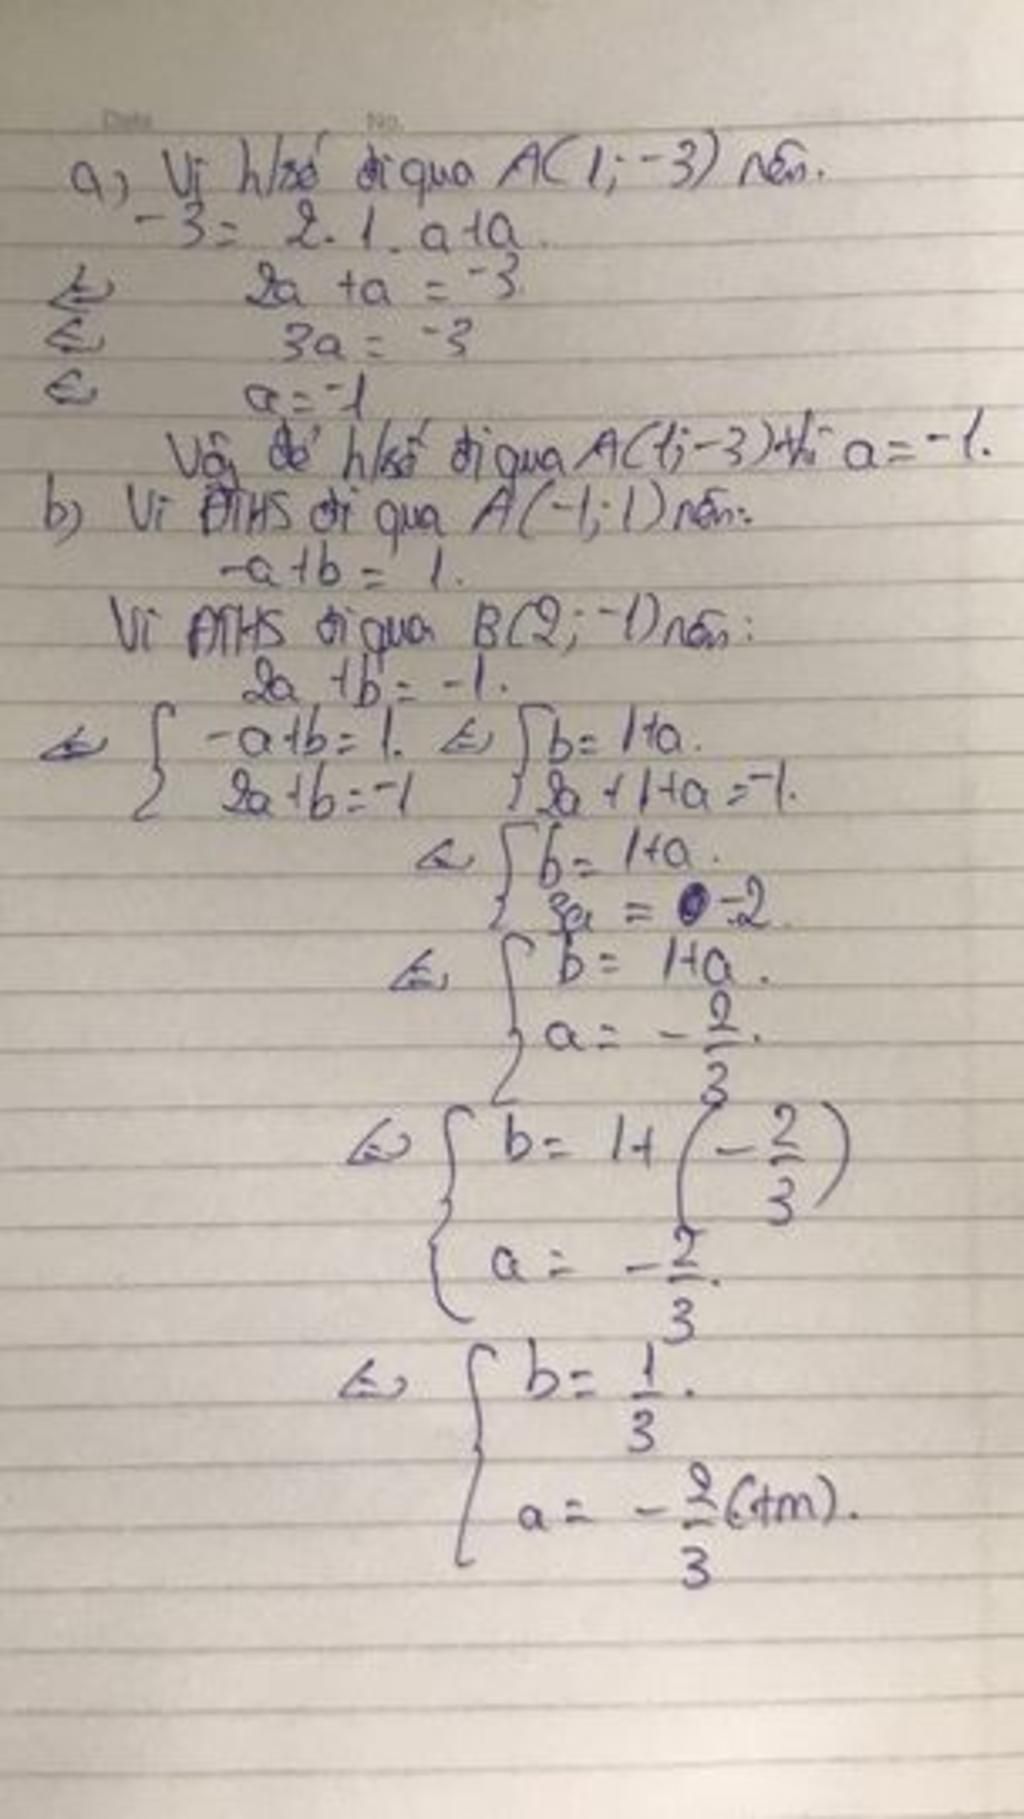 Date No.
a) Vì h/số đi qua A(1; -3) nên.
-3 = 2.1.a+a.
⇔ 2a + a = -3
⇔ 3a = -3
⇔ a = -1
Vậy để h/số đi qua A(1; -3) thì a = -1.
b) Vì ĐTHS đi qua A(-1; 1) nên:
-a+b = 1.
Vì ĐTHS đi qua B(2; -1) nên:
2a + b = -1.
⇔ { -a+b = 1. ⇔ { b = 1+a.
2a+b = -1 2a+1+a = -1.
⇔ { b = 1+a.
3a = -2
⇔ { b = 1+a.
a = -2/3.
⇔ { b = 1+(-2/3)
a = -2/3.
⇔ { b = 1/3.
a = -2/3 (tm).